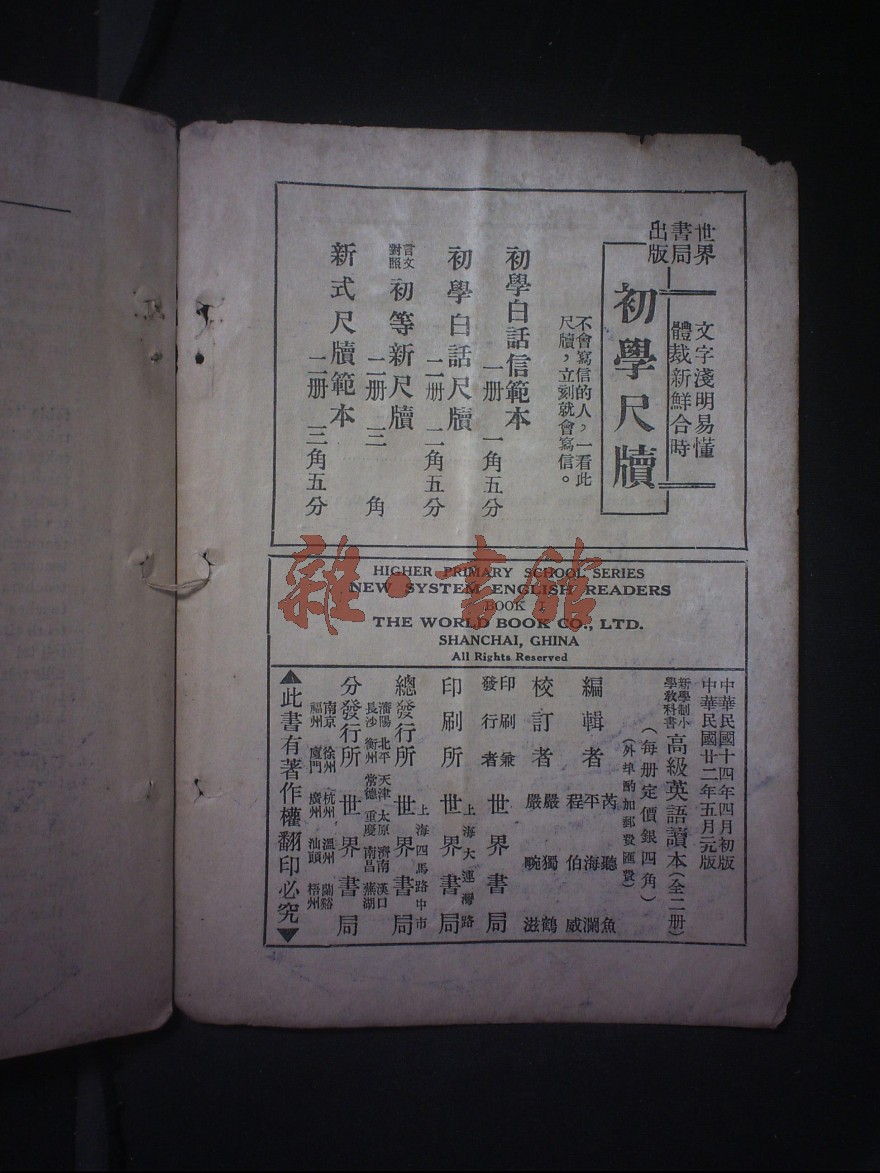 世界
書局
出版
文字淺明易懂
體裁新鮮合時
初學尺牘
不會寫信的人，一看此
尺牘，立刻就會寫信。
初學白話信範本
一册 一角五分
初學白話尺牘
二册 二角五分
言文
對照
初等新尺牘
二册 三 角
新式尺牘範本
二册 三角五分
雜·書館
HIGHER PRIMARY SCHOOL SERIES
NEW SYSTEM ENGLISH READERS
BOOK I
THE WORLD BOOK CO., LTD.
SHANCHAI, GHINA
All Rights Reserved
中華民國十四年四月初版
中華民國廿二年五月元版
新學制小
學教科書
高級英語讀本（全二册）
（每册定價銀四角）
（外埠酌加郵費匯費）
編輯者
芮聽魚
平海瀾
程伯威
校訂者
嚴獨鶴
嚴畹滋
印刷兼
發行者
世界書局
印刷所
上海大連灣路
世界書局
總發行所
上海四馬路中市
世界書局
分發行所
瀋陽 北平 天津 太原 濟南 漢口
長沙 衡州 常德 重慶 南昌 蕪湖
南京 徐州 杭州 溫州 蘭谿
福州 廈門 廣州 汕頭 梧州
世界書局
▲此書有著作權翻印必究▼